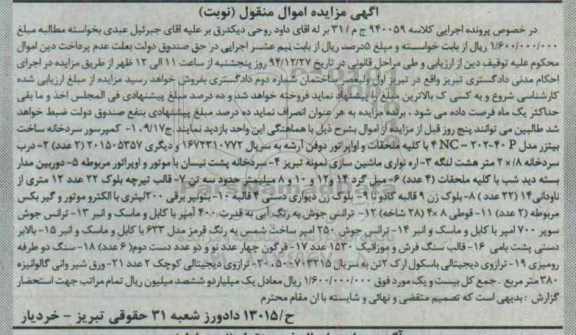 آگهی مزایده اموال منقول (نوبت)
در خصوص پرونده اجرایی کلاسه ۹۴۰۰۵۹ ج م / ۳۱ بر له اقای داود روحی دیکدرق بر علیه اقای جبرئیل عبدی بخواسته مطالبه مبلغ
۱/۶۰۰/۰۰۰/۰۰۰ ریال از بابت خواسته و مبلغ ۵درصد ریال از بابت نیم عشر اجرایی در حق صندوق دولت بعلت عدم پرداخت دین اموال
محکوم علیه توقیف دین از ارزیابی و طی مراحل قانونی در تاریخ ۹۴/۱۲/۲۷ روز پنجشنبه از ساعت ۱۱ الی ۱۲ ظهر از طریق مزایده در اجرای
احکام مدنی دادگستری تبریز واقع در تبریز اول ساختمان شماره دوم دادگستری بفروش خواهد رسید مزایده از مبلغ ارزیابی شده
کارشناسی شروع و به کسی که بالاترین مبلغ را پیشنهاد نماید فروخته خواهد شد و ده درصد مبلغ پیشنهادی فی المجلس اخذ و ما بقی
حداکثر یک ماه فرصت داده می شود ، برنده مزایده به هر عنوان انصراف نماید ده درصد مبلغ پیشنهادی بنفع صندوق دولت ضبط خواهد
شد طالبین می توانند پنج روز قبل از مزایده از اموال بشرح ذیل با هماهنگی این واحد بازدید نمایند. ۱- کمپرسور سردخانه ساخت
بیتزر مدل ۴ NC – ۲۰۲-۴۰ P با کلیه ملحقات و اواپراتور دوفن آرشه به سریال ۱۶۷۲۳۱۰۷۷۲ و دیگری ۲۰۱۵۰۵۳۵۷ (۲ عدد) ۲- درب
سردخانه ۲×۱/۸ متر هشت لنگه ۳- اره نواری ماشین سازی نمونه تبریز ۴- سردخانه پشت نیسان با موتور و اوپراتور مربوطه ۵- دوربین مدار
بسته دید شب با کلیه ملحقات (۴ عدد) ۶- میل گرد ۱۴ و ۱۲ و ۱۰ و ۸ میلیمتر حدود سه تن ۷- قالب تیرچه بلوک ۲۲ عدد ۱۲ متری از
ناودانی ۱۴ (۲۲ عدد) ۸- بلوک زن ۹ قالبه گادو ۹- بلوک زن دیواری دستی ۴ قالبه ۱۰- بتونیر برقی ۲۰۰لیتری با الکترو موتور و گیر بکس
مربوطه (۲ عدد) ۱۱- قوطی ۸×۴ (۲۸ شاخه) ۱۲- ترانس جوش به رنگ آبی به قدرت ۴۰۰ آمپر با کابل و ماسک و انبر ۱۳- ترانس جوش
سوپر ۷۰۰ آمپر با کابل و ماسک و انبر ۱۴- ترانس جوش ۲۵۰ آمپر ساخت شمس به رنگ قرمز مدل ۶۳۳ با کابل و ماسک و انبر ۱۵- بالابر
دستی پشت بامی ۱۶- قالب سنگ فرش و موزائیک ۱۵۳۰ عدد ۱۷- فرگون چهار عدد نو و دو عدد دست دوم( ۶ عدد) ۱۸- سنگ دو طرفه
رومیزی ۱۹- ترازوی دیجیتالی باسکول ارک ۲تن به سریال ۲۰،۵۰۰۷۰۳۲۱۵- ترازوی دیجیتالی کوچک ۲ عدد ۲۱- ورق شیر وانی گالوانیزه
۳۸۰ متر مربع . جمع کل بیست و یک مورد فوق ۱/۶۰۰/۰۰۰/۰۰۰ ریال معادل یک میلیارد و ششصد میلیون ریال تمام مراتب جهت استحضار
گزارش : بدیهی است که تصمیم متقضی و نهائی و شایسته با ان مقام محترم
ح/۱۳۰۱۵ دادورز شعبه ۳۱ حقوقی تبریز – خردیار